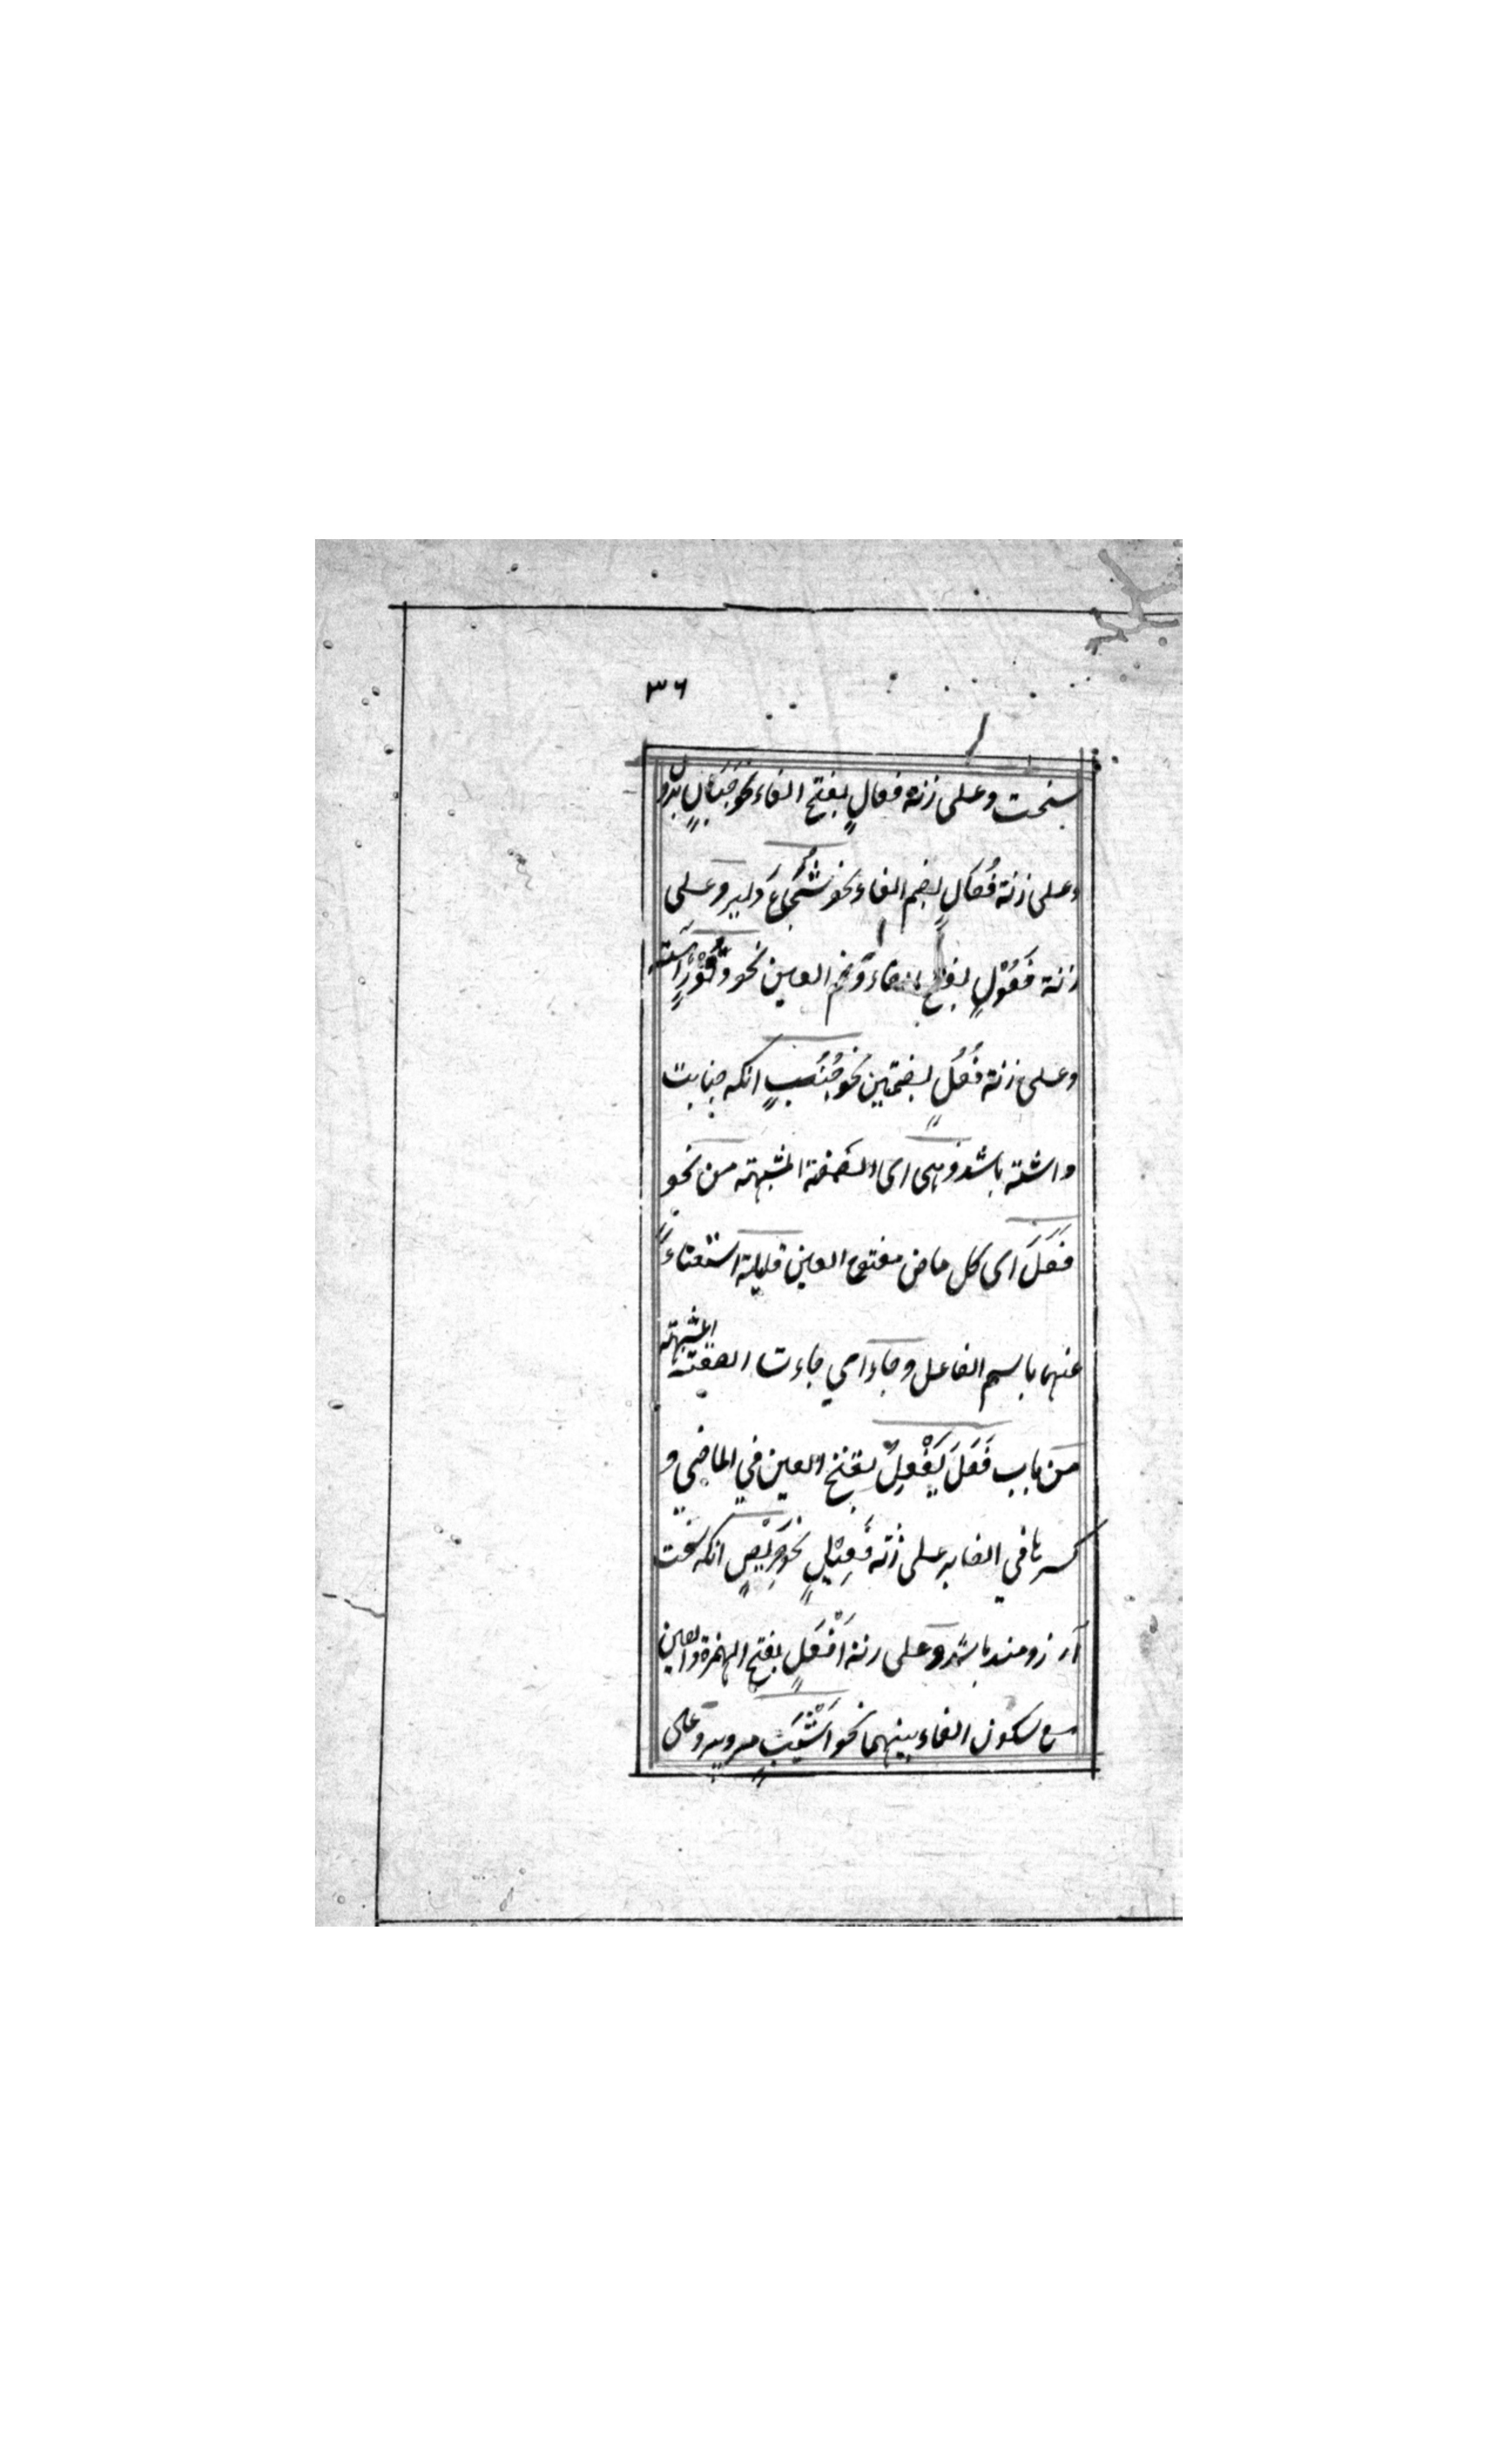 ٣٦
سخت وعلى زنة فعالٍ بفتح الفاء نحو جَبَانٍ بزدل
وعلى زنة فُعَالٍ بضم الفاء نحو شُجَاعٍ دلير وعلى
زنة فَعُوْلٍ بفتح الفاء وضم العين نحو وَقُوْرٍ آهسته
وعلى زنة فُعُلٍ بضمتين نحو جُنُبٍ انكه جنابت
داشته باشد وهى اى الصفة المشبهة من نحو
فَعَلَ اى كل ماض مفتوح العين قليلة استغناءً
عنها باسم الفاعل وجاء اي جاءت الصفة المشبهة
من باب فَعَلَ يَفْعِلُ بفتح العين في الماضي و
كسرها في الغابر على زنة فَعِيْلٍ نحو حَرِيْصٍ انكه سخت
آرزومند باشد وعلى زنة اَفْعَلٍ بفتح الهمزة والعين
مع سكون الفاء بينهما نحو اَشْيَبٍ مرد پير وعلى